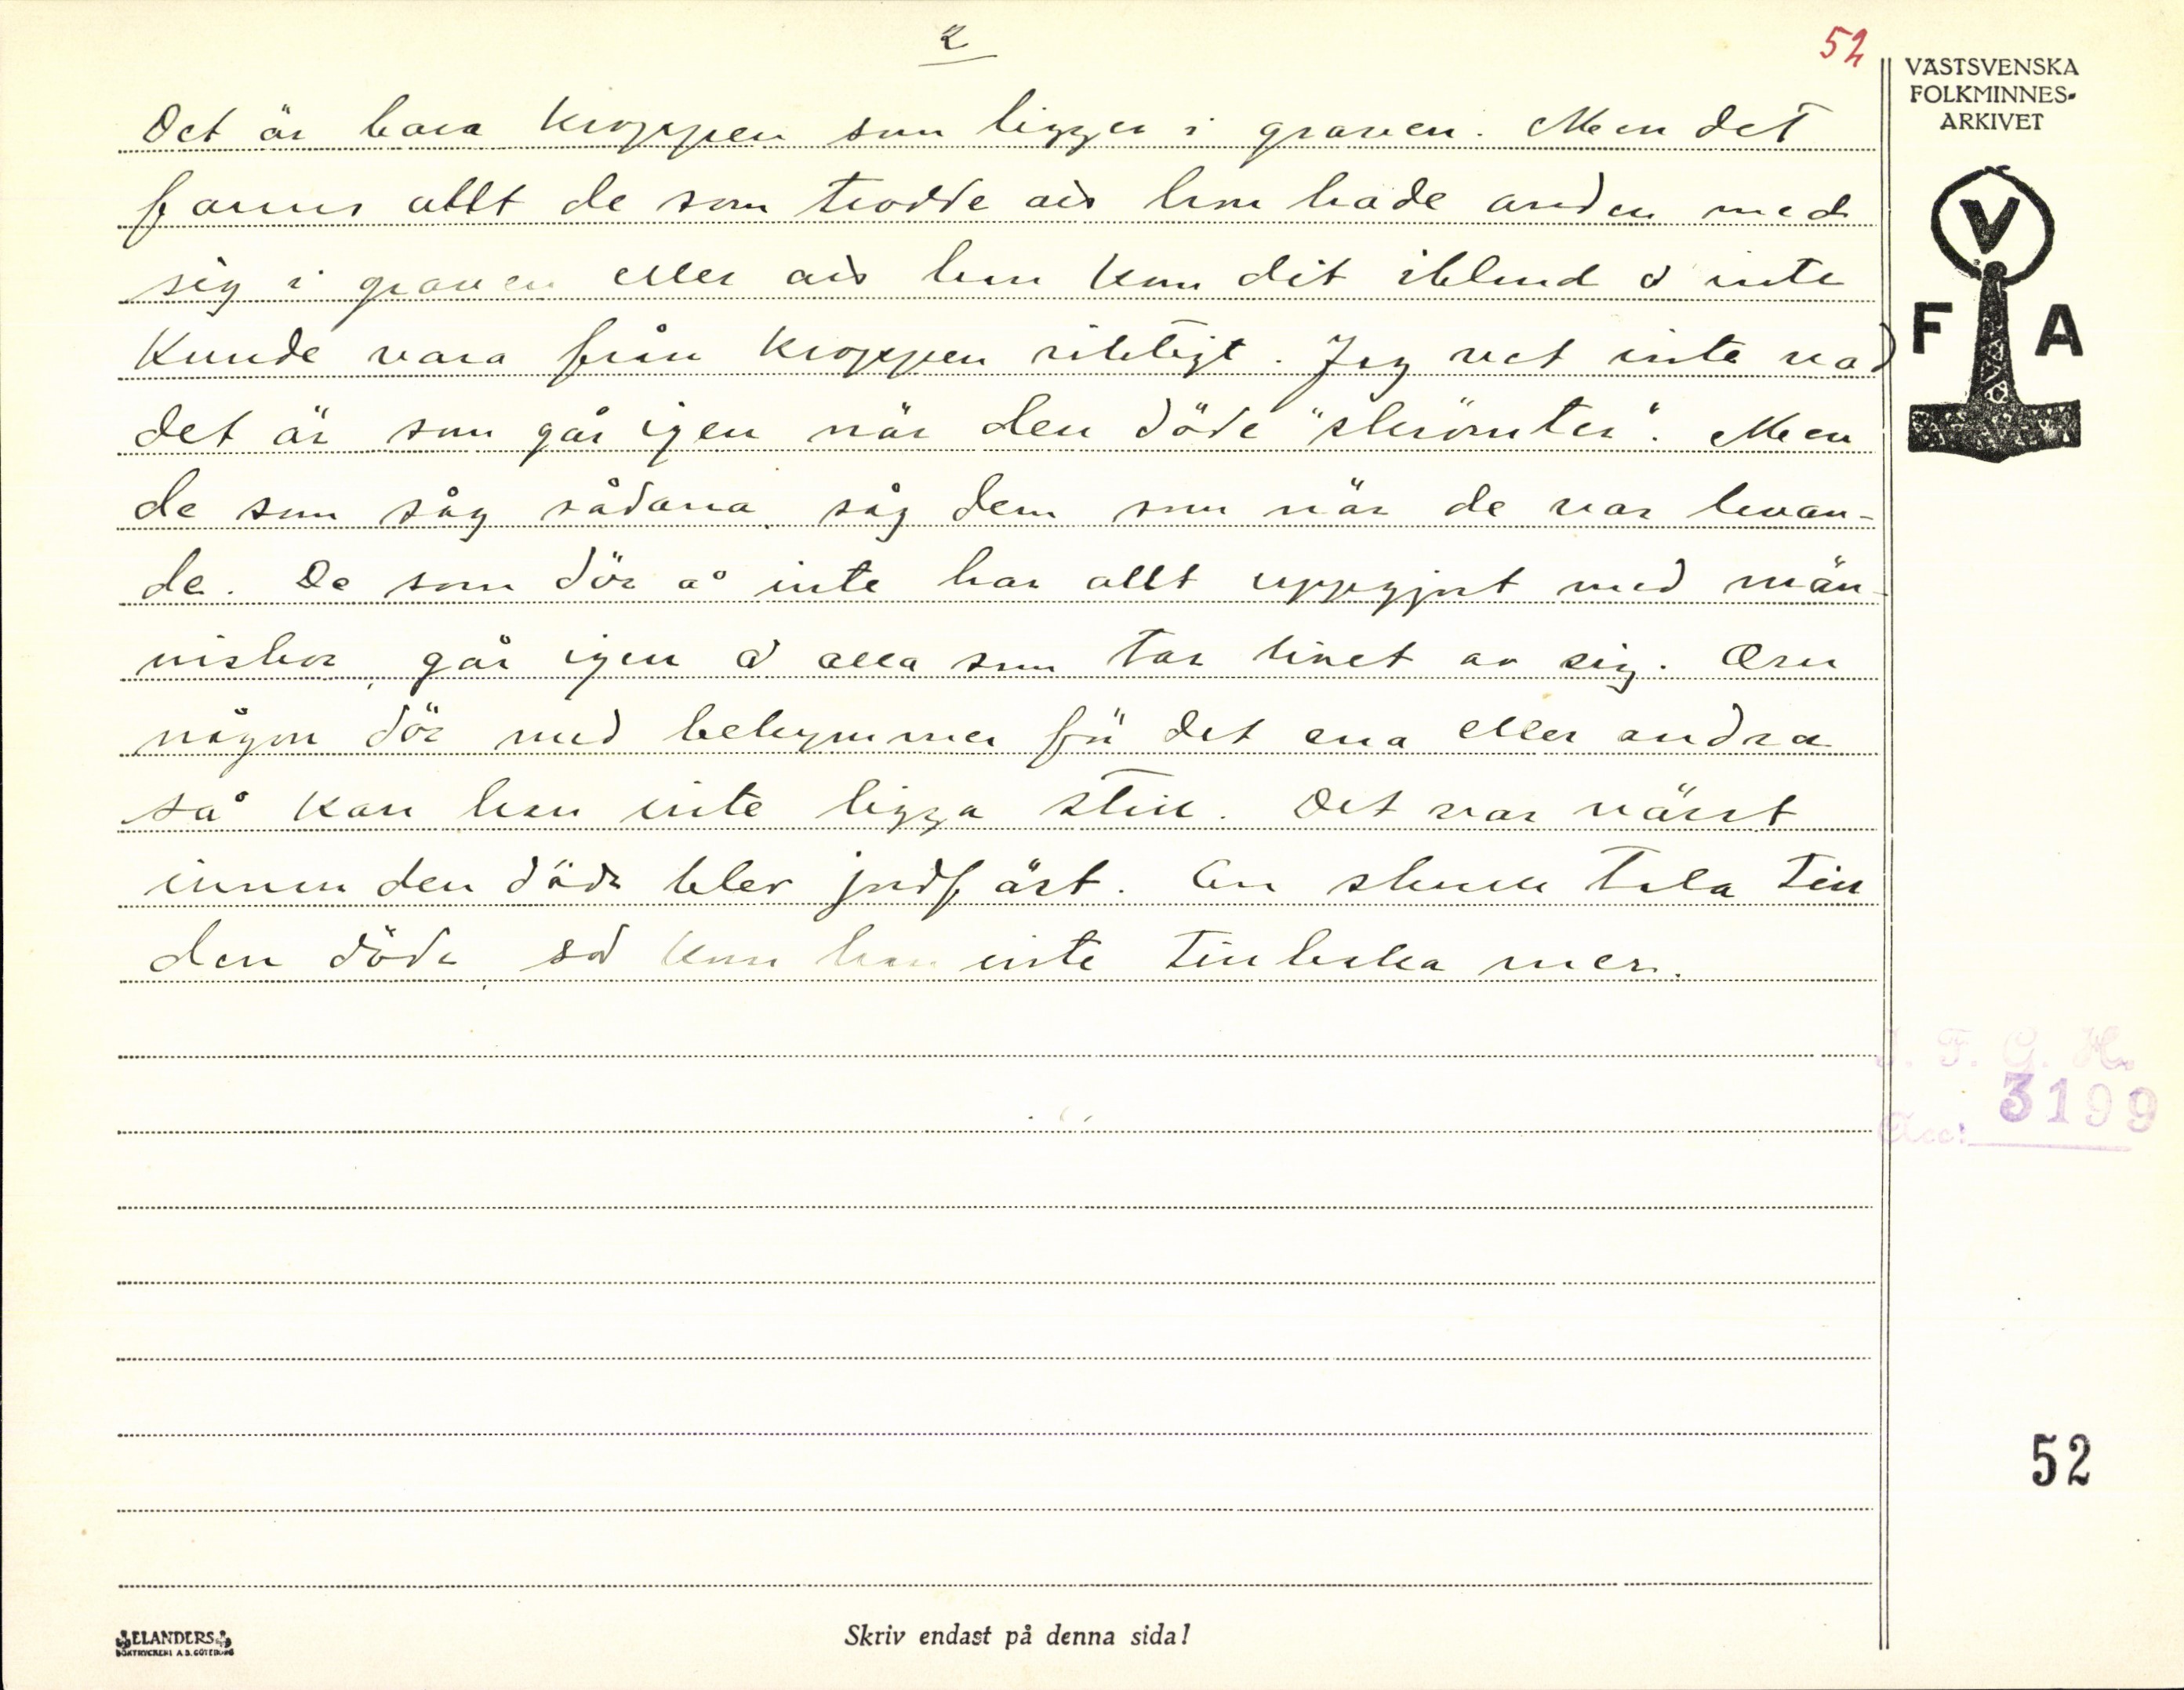 2
52
VÄSTSVENSKA
FOLKMINNES-
ARKIVET
V
F A
Det är bara kroppen som ligger i graven. Men det
fanns allt de som trodde att han hade anden med
sig i graven eller att han kom dit ibland å inte
kunde vara från kroppen riktigt. Jag vet inte vad
det är som går igen när den döde "skrömter". Men
de som såg sådana såg dem som när de var levan-
de. De som dör å inte har allt uppgjort med män-
niskor, går igen å alla som tar livet av sig. Om
någon dör med bekymmer för det ena eller andra
så kan han inte ligga still. Det var värst
innan den döde blev jordfäst. En skulle tala till
den döde, så kom han inte tillbaka mer.
J. F. G. H.
Acc: 3199
52
ELANDERS
BOKTRYCKERI A.B. GÖTEBORG
Skriv endast på denna sida!